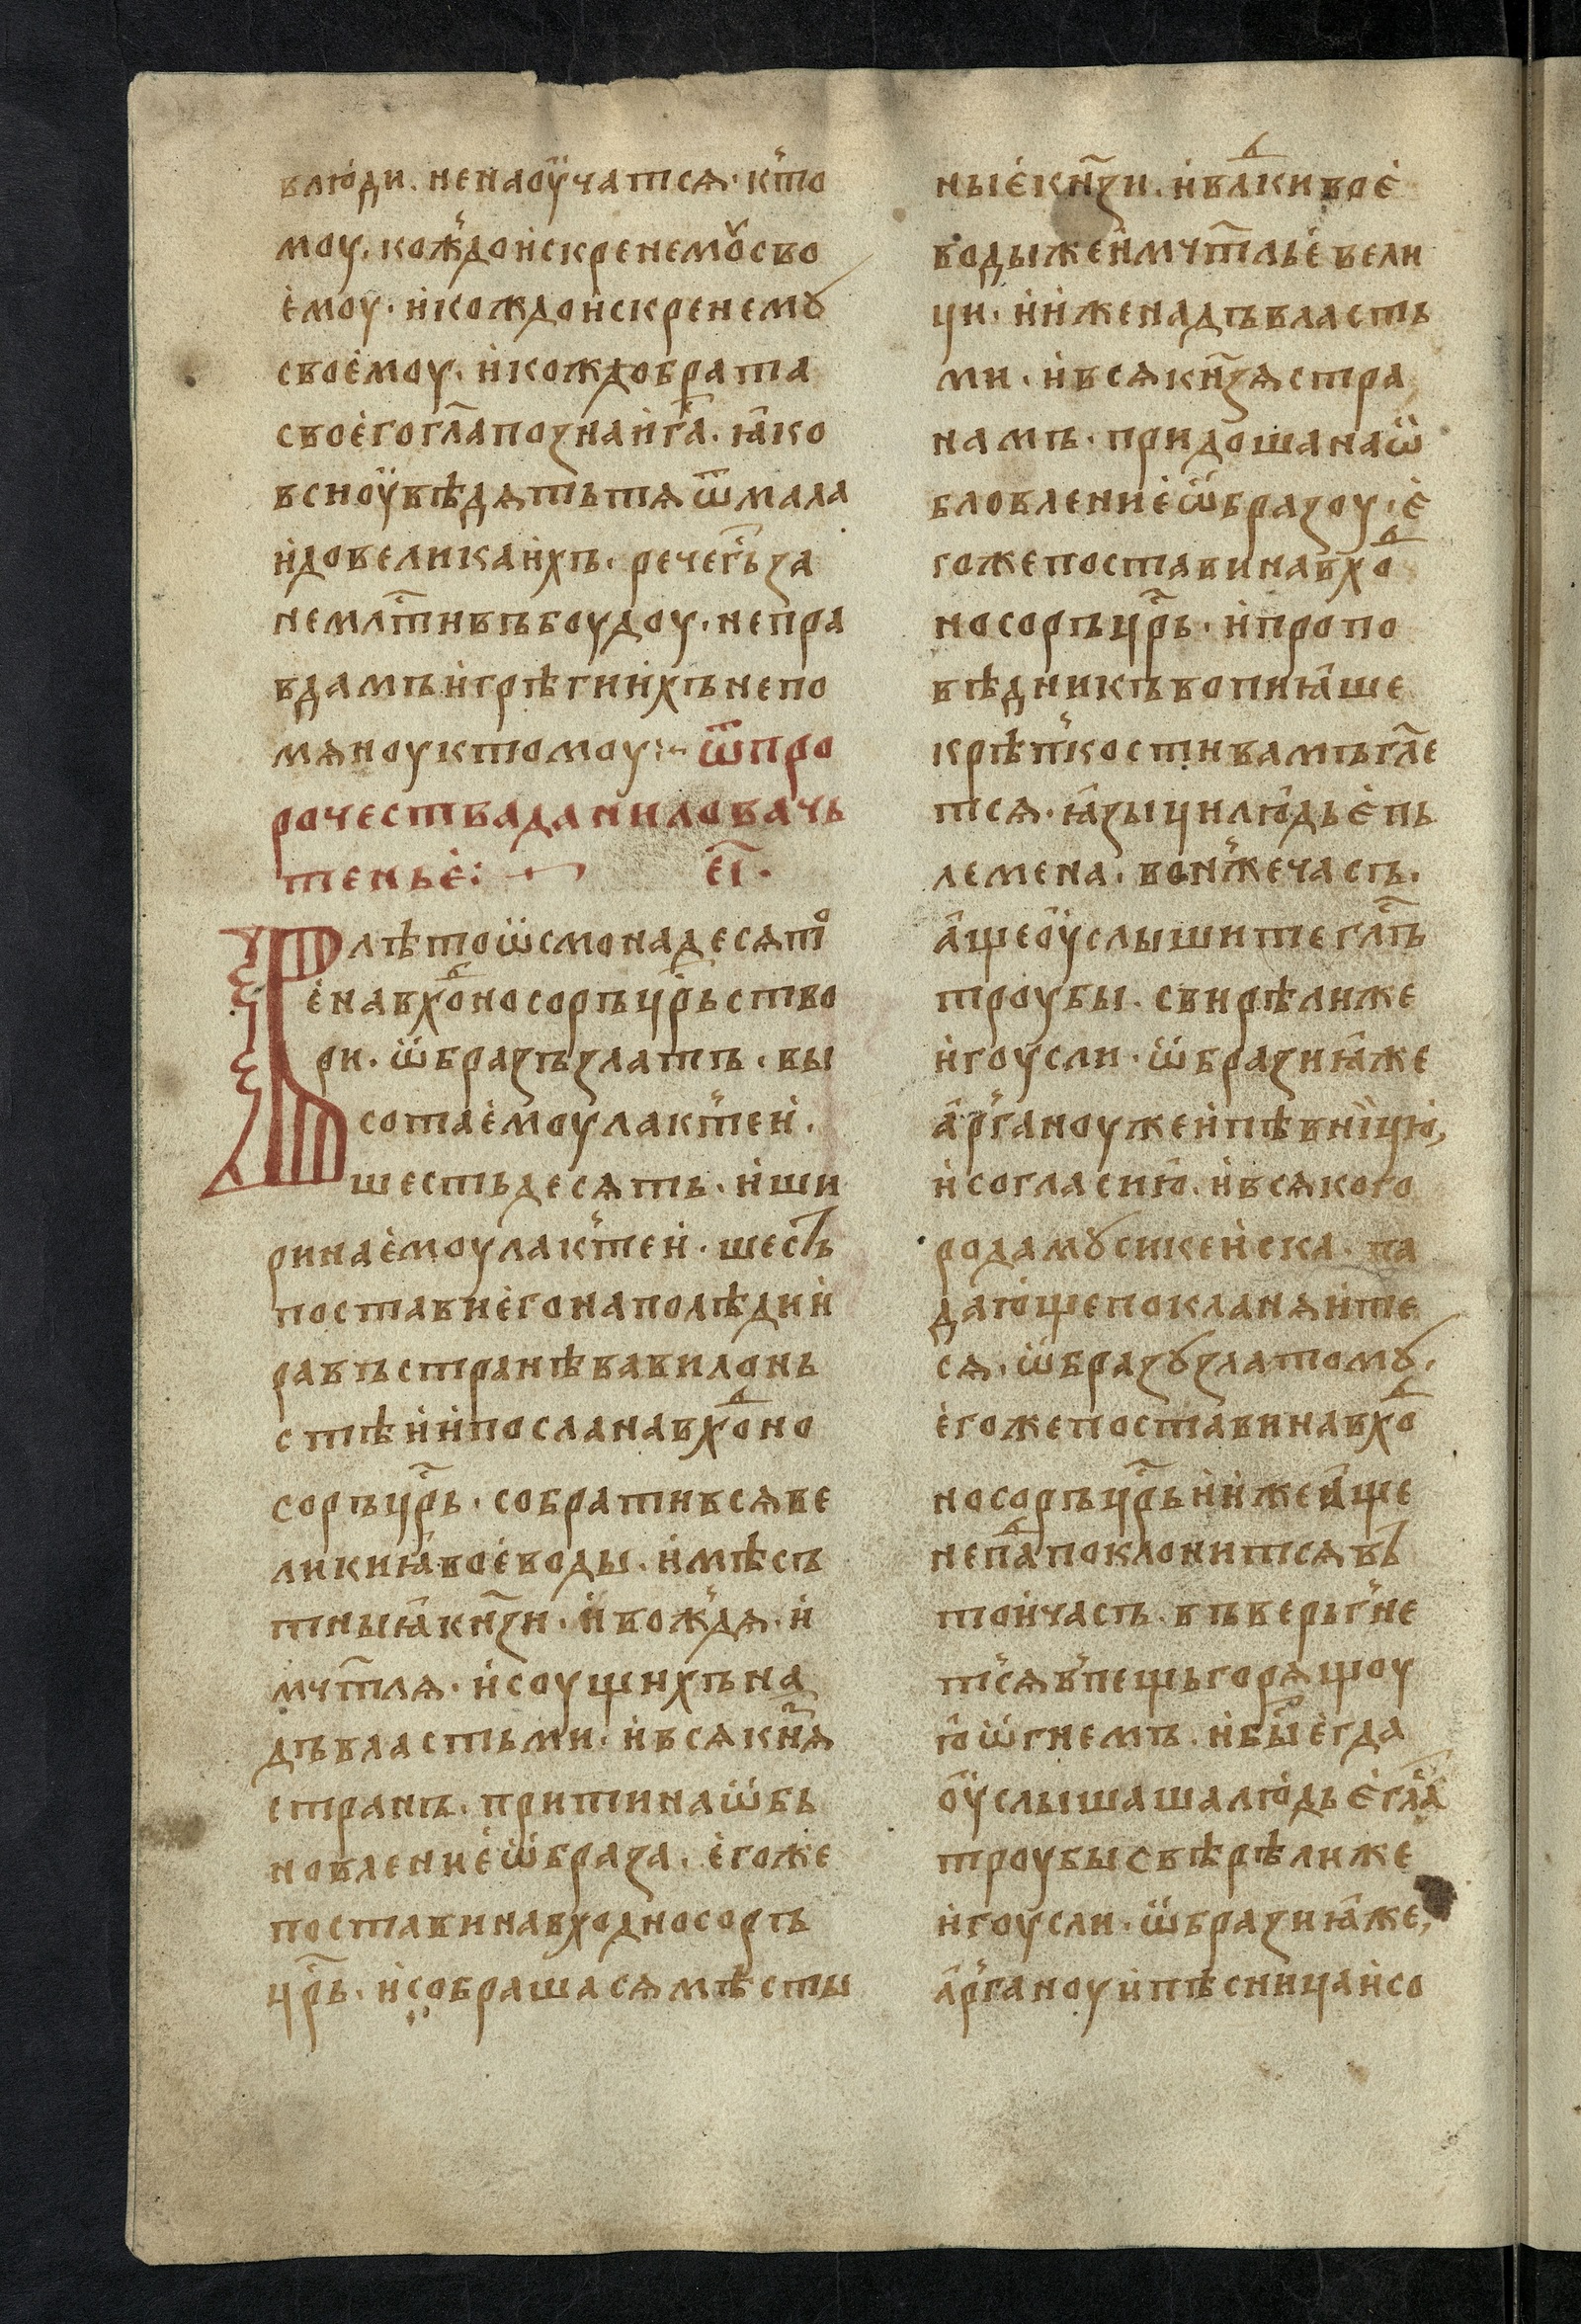 в люди. не наоучатся. к҃то
моу. кождо искренемоу сво
емоу. и кождо искренемꙋ
своемоу. и кождо брата
своего гл҃а познаи г҃а. ꙗко
вси оувѣдять тѧ ѿ мала
и до велика ихъ. рече г҃ь за
не млⷭ҇тивъ боудоу. непра
вдамъ и грѣси ихъ не по
мѧноу к томоу :~ ѿ про
рочества данилова чь
тенье: ~ е҃ı.
В лѣто ѡсмонадесѧтоⷪ
е навхоⷣоносоръ цр҃ь ство
ри. ѡбразъ златъ. вы
сота емоу лактеи.
шестьдесѧть. и ши
рина емоу лактеи. шесть
постави его на поли дии
равъ странѣ вавилонь
стѣи и посла навхоⷣоно
соръ цр҃ь. собрати всѧ ве
ликиꙗ воеводы. и мѣсъ
тныꙗ кн҃зи. и вождѧ. и
мч҃тлѧ. и соущихъ на
дъ властьми. и всѧ кн҃зѧ
странъ. прити на ѡбь
новление ѡбраза. егоже
постави навходносоръ
цр҃ь. и собрашасѧ мѣсты
ные кн҃зи. и влⷣки вое
воды же и мч҃тлье вели
ци. и иже надъ власть
ми. и всѧ кн҃зѧ стра
намъ. придоша на ѡ
бловление ѡбразоу. е
гоже постави навхоⷣ
носоръ цр҃ь. и пропо
вѣдникъ вопиꙗше
крѣпкости вамъ гл҃е
тсѧ. ꙗзыци людье пь
лемена. вонже часъ.
аще оуслышите гла҃съ
троубы. свирѣли же
и гоусли. ѡбрази ꙗже
арганоу же и пѣвницю,
и согласию. и всѧкого
рода мꙋсикеиска. па
дающе покланѧите
сѧ. ѡбразꙋ златомꙋ.
егоже постави навхоⷣ
носоръ цр҃ь и иже аще
не паⷣ поклонитсѧ въ
тои часъ. въвергне
тсѧ в пещь горѧщоу
ю ѡгнемъ. и быⷭ егда
оуслышаша людье гла҃
троубы свѣрѣли же
и гоусли. ѡбрази ꙗже,
арганоу и пѣсница и со